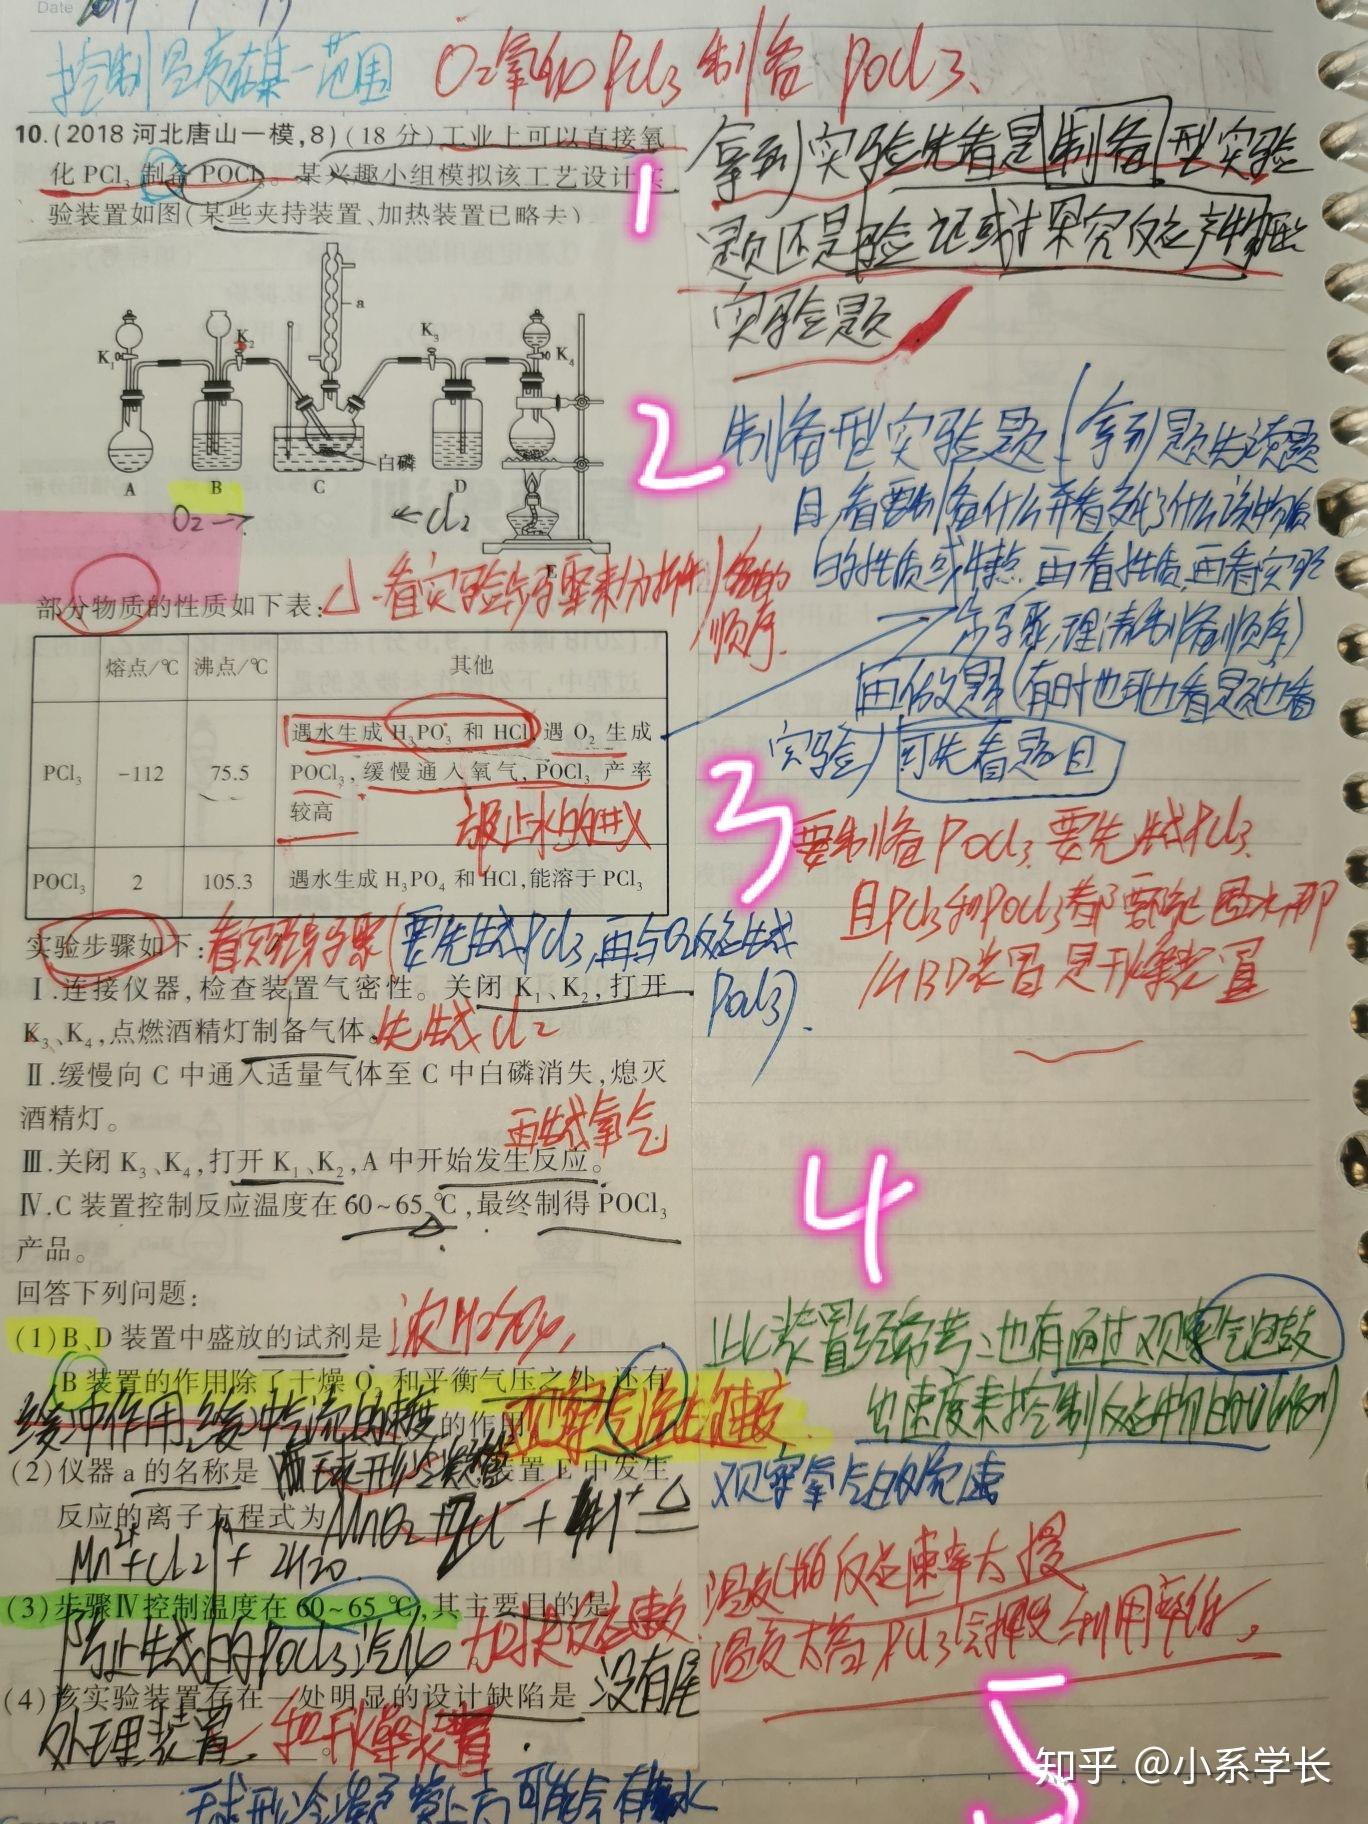 Date
控制温度在某一范围
O2氧化PCl3制备 POCl3、
10.(2018河北唐山一模,8)(18分)工业上可以直接氧
化PCl3制备POCl3。某兴趣小组模拟该工艺设计实
验装置如图(某些夹持装置、加热装置已略去)
1
拿到实验先看是制备型实验
题还是验证或探究反应产物
实验题
K1
K2
a
K3
K4
白磷
A
B
C
D
E
O2→
←Cl2
2
制备型实验题(拿到题先读题
目,看要制备什么并看交代了什么该物质
的性质或特点,再看性质,再看实验
步骤,理清制备顺序)
再做题(有时也可边看题边看
实验)可先看题目
部分物质的性质如下表:
看实验步骤来分析制备的
顺序.
熔点/℃ 沸点/℃ 其他
PCl3 -112 75.5 遇水生成H3PO3和HCl,遇O2生成
POCl3,缓慢通入氧气,POCl3产率
较高
防止水的进入
POCl3 2 105.3 遇水生成H3PO4和HCl,能溶于PCl3
3
要制备POCl3,要先生成PCl3,
且PCl3和POCl3都要 水,那
么BD装置是干燥装置
实验步骤如下:
看实验步骤(要先生成PCl3,再与O2反应生成
POCl3).
Ⅰ.连接仪器,检查装置气密性。关闭K1、K2,打开
K3、K4,点燃酒精灯制备气体。
先生成Cl2
Ⅱ.缓慢向C中通入适量气体至C中白磷消失,熄灭
酒精灯。
再生成氧气
Ⅲ.关闭K3、K4,打开K1、K2,A中开始发生反应。
Ⅳ.C装置控制反应温度在60~65℃,最终制得POCl3
产品。
4
回答下列问题:
(1)B、D装置中盛放的试剂是
浓H2SO4,
B装置的作用除了干燥O2和平衡气压之外,还有
缓冲作用,缓冲气流的速度
的作用。
观察气泡的速度
此装置经常考,也有通过观察气泡鼓
出速度来控制反应物的比例)
观察氧气的流速
(2)仪器a的名称是
球形冷凝管
装置E中发生
反应的离子方程式为
MnO2+2Cl-+4H+ △
Mn2++Cl2↑+2H2O
(3)步骤Ⅳ控制温度在60~65℃,其主要目的是
防止生成的POCl3汽化
加快反应速度
温度低反应速率太慢
温度太高PCl3会挥发,利用率低。
(4)该实验装置存在一处明显的设计缺陷是
没有尾
处理装置
和干燥装置.
5
球形冷凝管上方可能会有水
知乎 @小系学长